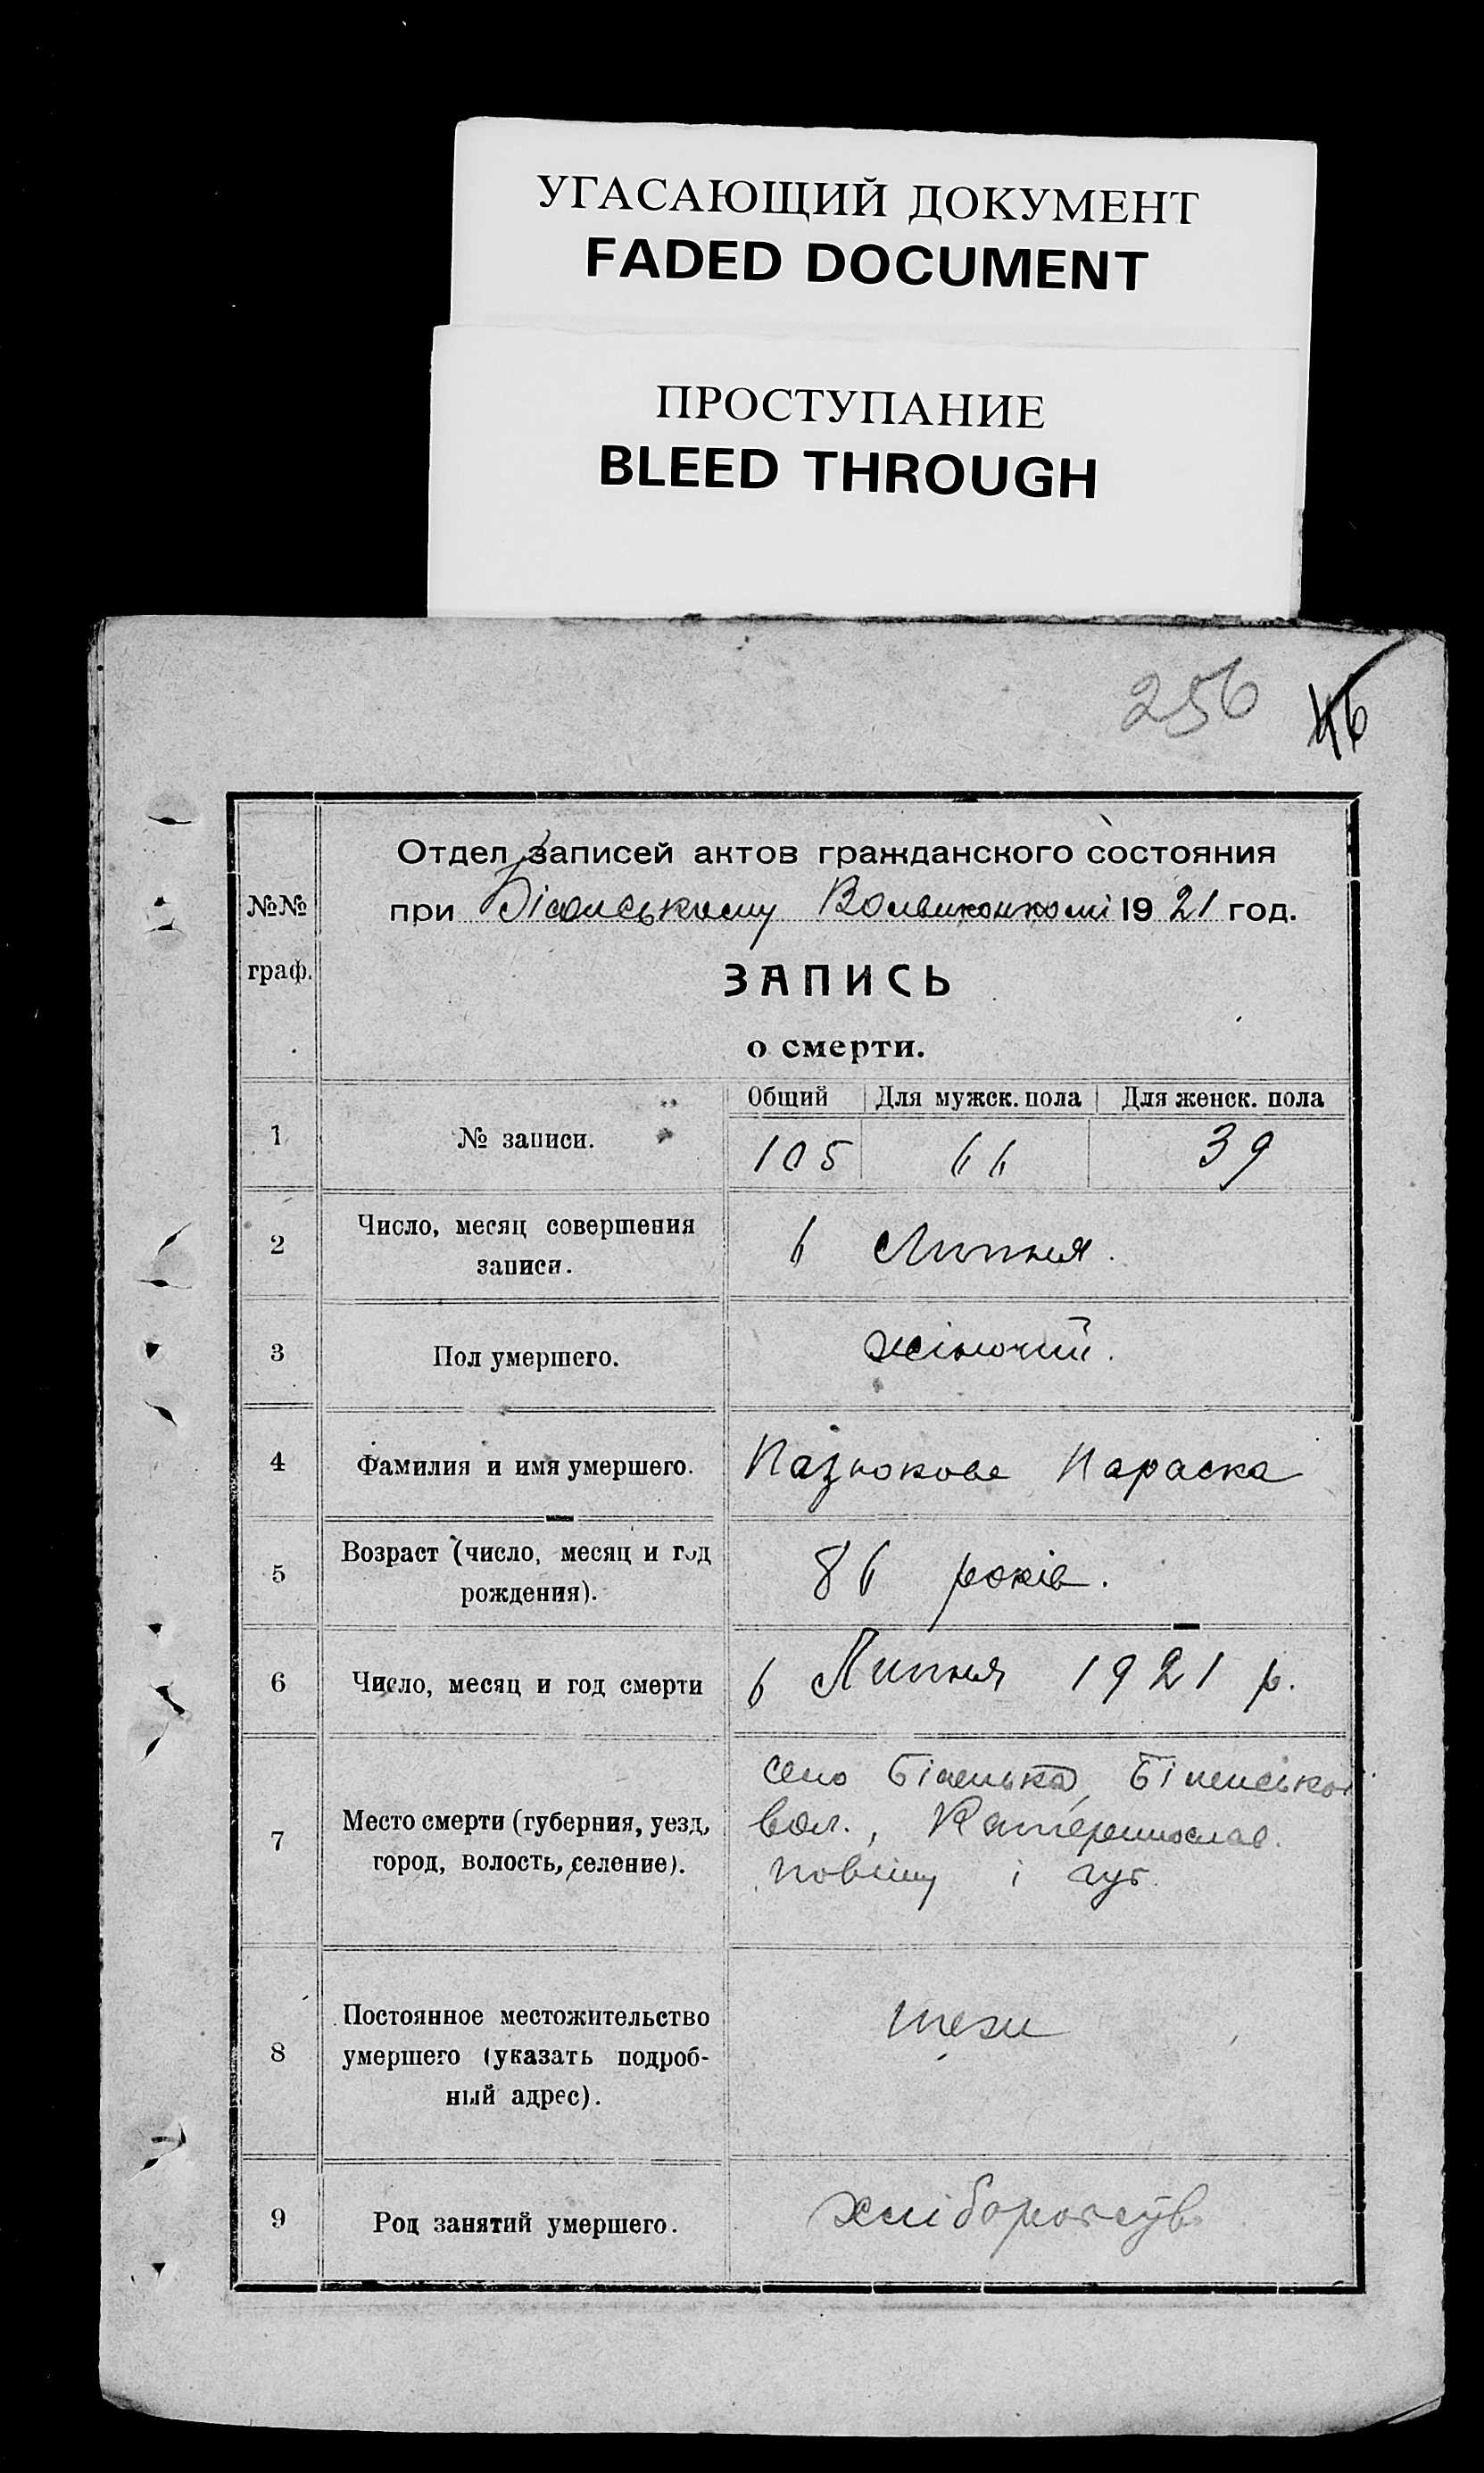 УГАСАЮЩИЙ ДОКУМЕНТ
FADED DOCUMENT
ПРОСТУПАНИЕ
BLEED THROUGH
256 46
№№ граф.
Отдел записей актов гражданского состояния
при Волвиконкомі 1921 год.
ЗАПИСЬ
о смерти.
Общий Для мужск. пола Для женск. пола
1 № записи. 105 66 39
2 Число, месяц совершения
записи.
6 Липня.
3 Пол умершего. жіночий.
4 Фамилия и имя умершего. Параска
5 Возраст (число, месяц и год
рождения).
86 років.
6 Число, месяц и год смерти 6 Липня 1921 р.
7 Место смерти (губерния, уезд,
город, волость, селение).
село Біленька, Біленської
вол., Катеринослав.
повіту і губ.
8 Постоянное местожительство
умершего (указать подроб-
ный адрес).
9 Род занятий умершего.